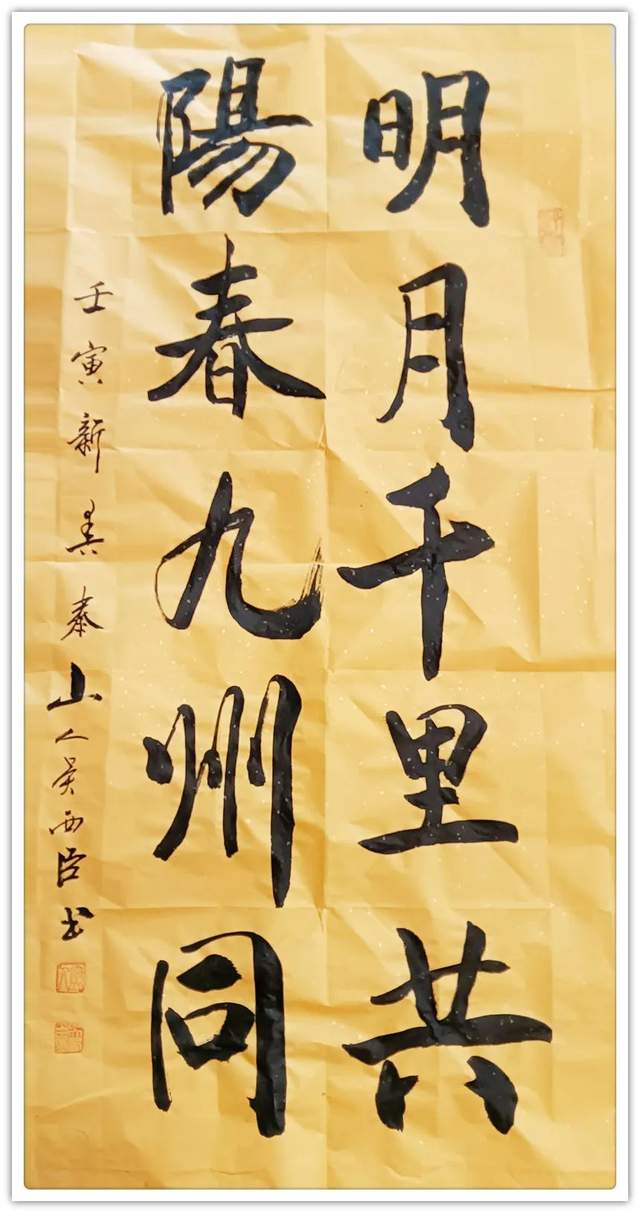 明月千里共
陽春九州同
壬寅新春秦山人吴西臣书